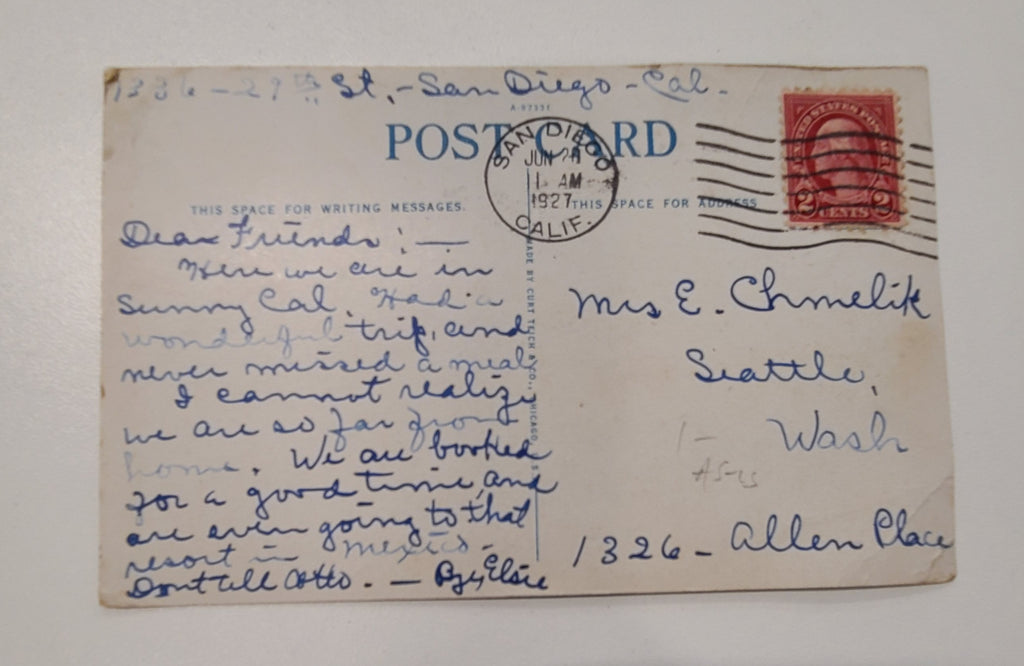 1336 - 29th St. - San Diego - Cal.
A-97331
POST CARD
SAN DIEGO
JUN 28
1 AM
1927
CALIF.
UNITED STATES POSTAGE
2 CENTS 2
THIS SPACE FOR WRITING MESSAGES.
THIS SPACE FOR ADDRESS
Dear Friends: —
Here we are in
Sunny Cal. Had a
wonderful trip, and
never missed a meal.
I cannot realize
we are so far from
home. We are booked
for a good time, and
are even going to that
resort in Mexico.
Dont tell Otto. — By, Elsie
MADE BY CURT TEICH & CO., CHICAGO, U.S.
Mrs E. Chmelik
Seattle,
Wash
1326 - Allen Place